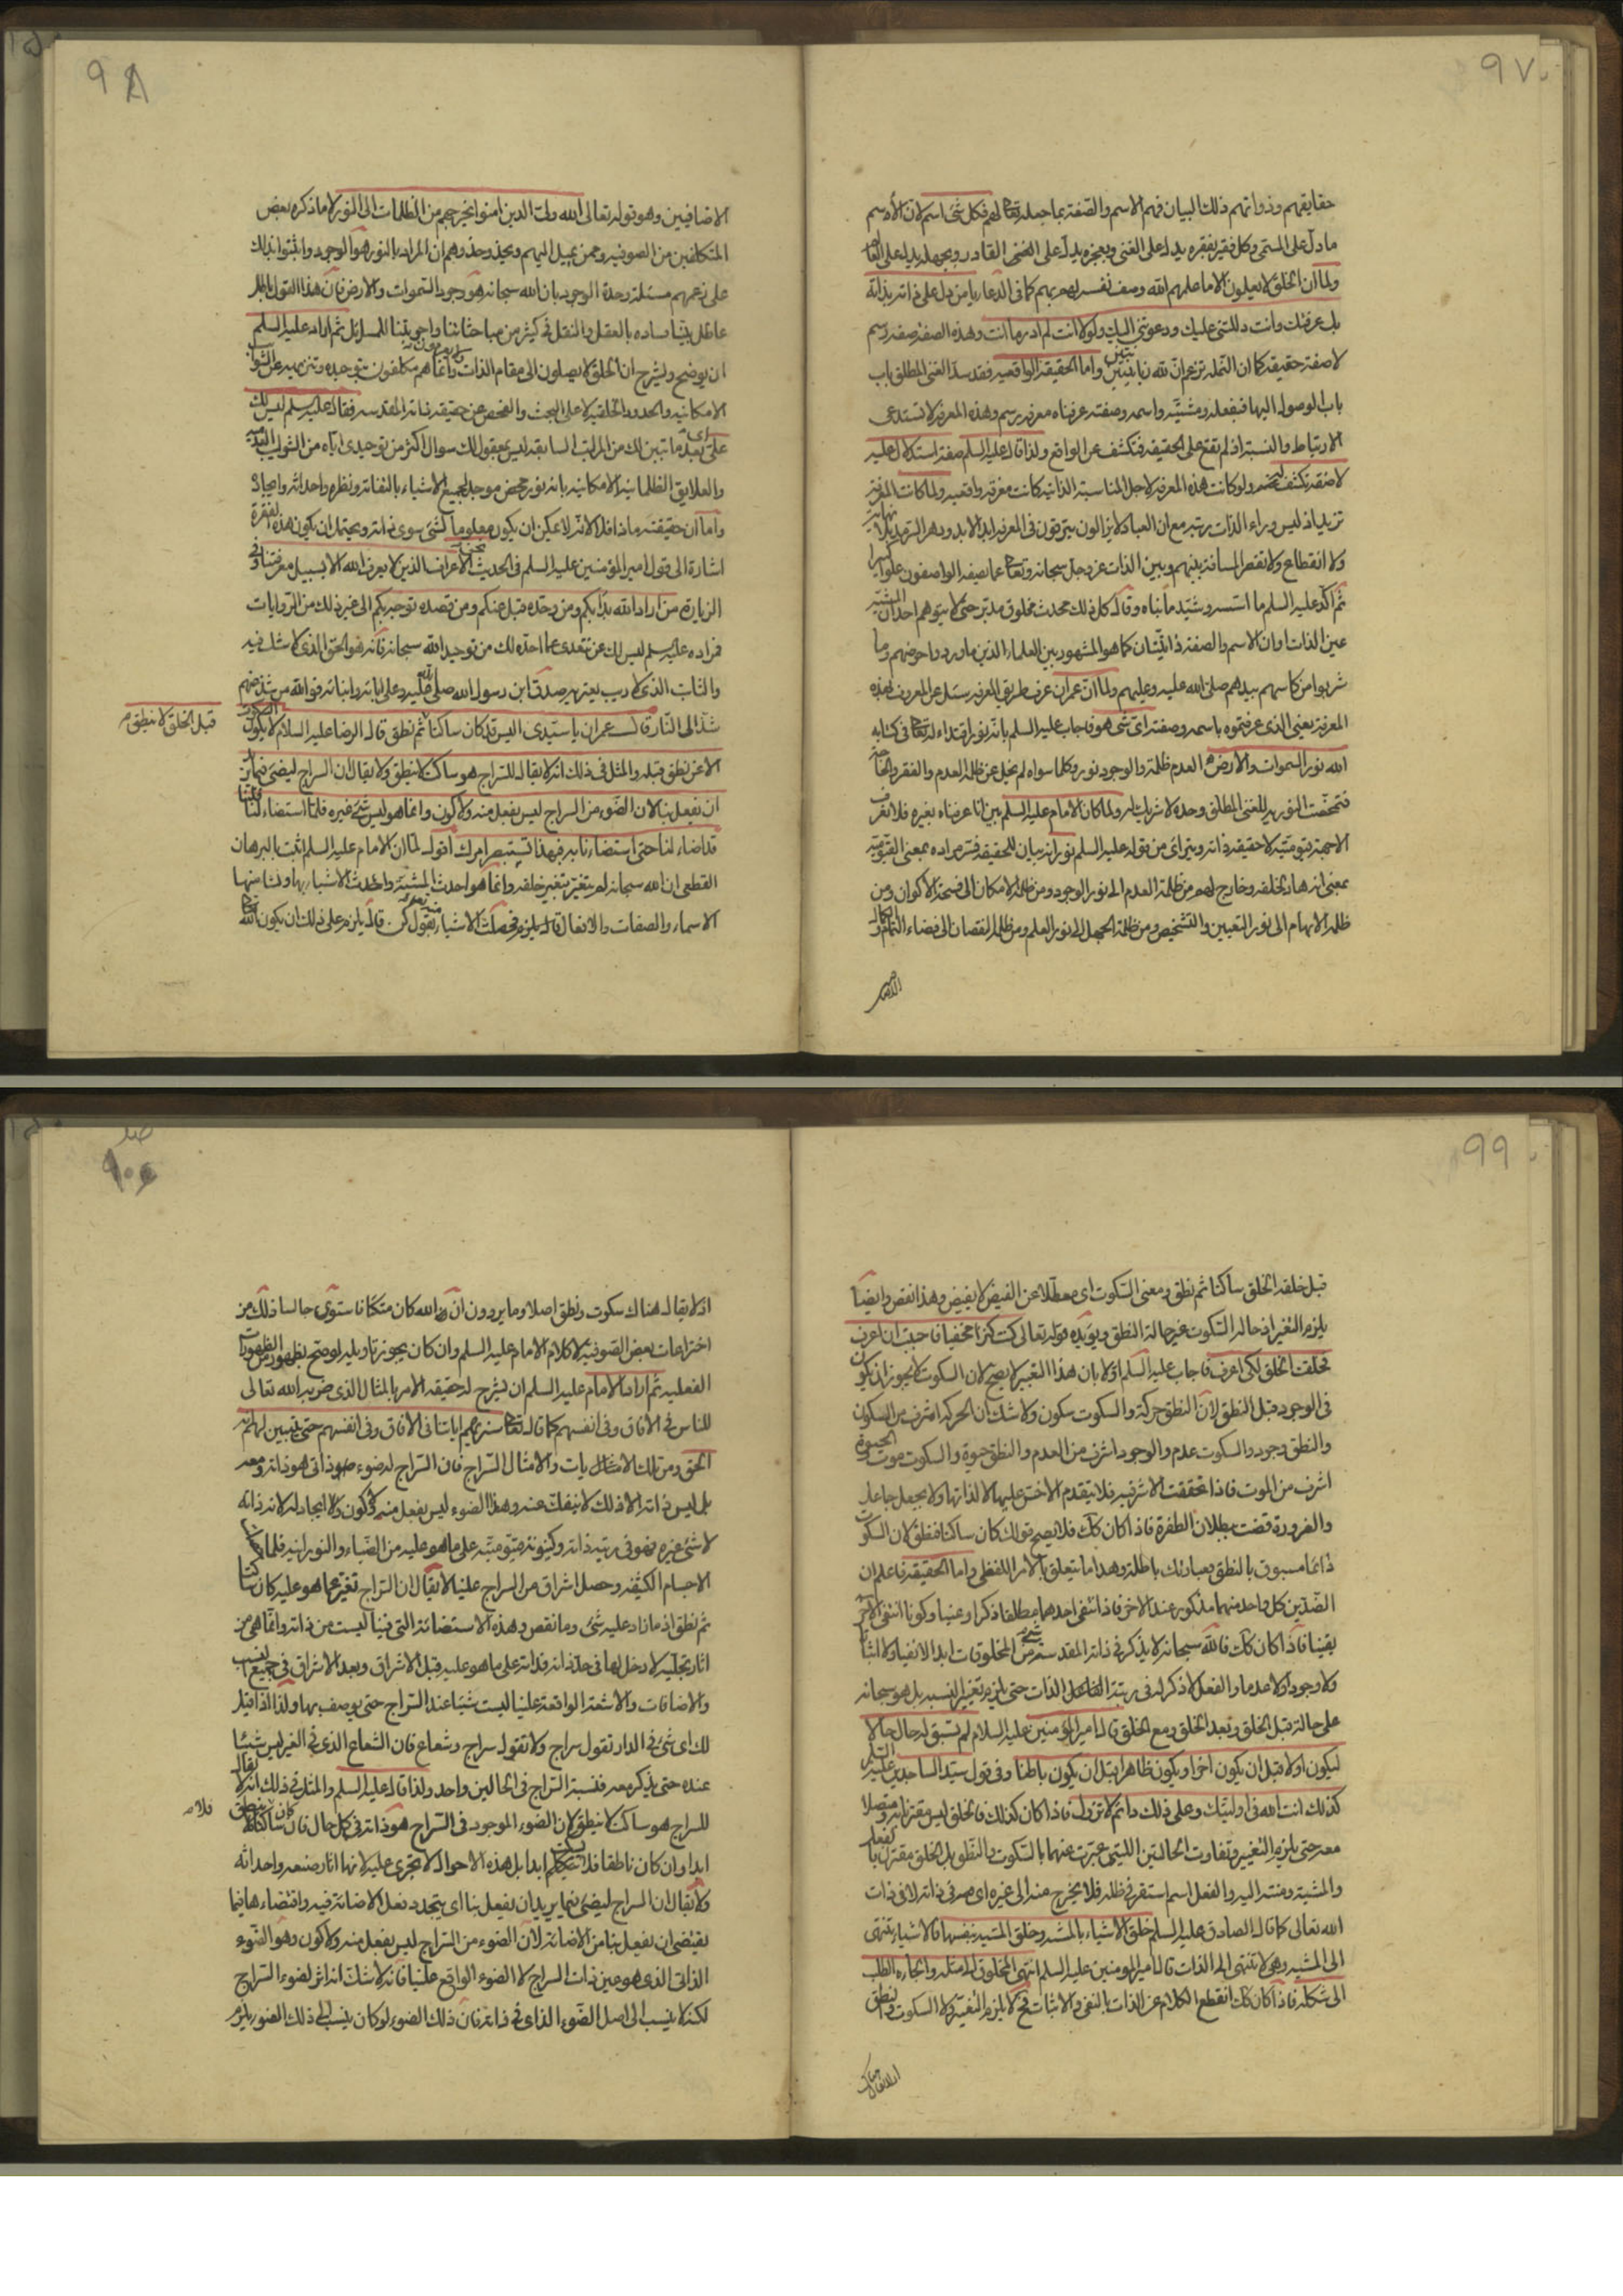 ٩٧
حقايقهم وذواتهم ذلك البيان فهم الاسم والصفة بما جعله تعالى لهم فكل شئ اسم لان الاسم
ما دل على المسمى وكل فقير بفقره يدل على الغنى وبعجزه يدل على الغنى القادر وبجهله يدل على العالم
ولما ان الخلق لا يعلمون الا ما علمهم الله وصف نفسه لهم بهم كما فى الدعاء يا من دل على ذاته بذاته
بك عرفتك وانت دللتنى عليك ودعوتنى اليك ولولا انت لم ادر ما انت وهذه الصفة صفة رسم
لا صفة حقيقة كما ان النملة تزعم ان لله زبانيتين واما الحقيقة الواقعية فقد سد الغنى المطلق باب
باب الوصول اليها فبفعله ومشيته واسمه وصفته عرفناه معرفة رسم وهذه المعرفة لا تستدعى
الارتباط والنسبة اذ لم تقع على الحقيقة فتكشف عن الواقع ولذا قال عليه السلم صفة استدلال عليه
لا صفة تكشف له ولو كانت هذه المعرفة لاجل المناسبة الذاتية كانت معرفة واقعية ولما كانت المعرفة
تزيد اذ ليس وراء الذات رتبة مع ان العباد لا يزالون يترقون فى المعرفة ابد الابد ودهر السرمد بلا نهاية
ولا انقطاع ولا تقصر المسافة بينهم وبين الذات عز وجل سبحانه وتعالى عما يصفه الواصفون علوا كبيرا
ثم اكد عليه السلم ما اسسه وشيد ما بناه وقال كل ذلك محدث مخلوق مدبر حتى لا يتوهم احد ان المشية
عين الذات او ان الاسم والصفة ذاتيتان كما هو المشهور بين العلماء الذين ما وردوا حوضهم وما
شربوا من كاسهم بيدهم صلى الله عليه وعليهم ولما ان عمران عرف طريق المعرفة سئل عن المعروف بهذه
المعرفة يعنى الذى عرفتموه باسمه وصفته اى شئ هو فاجاب عليه السلم بانه نور اقتداء له تعالى فى كتابه
الله نور السموات والارض العدم ظلمة والوجود نور وكلما سواه لم يخل عن ظلمة العدم والفقر والحاجة
فتمحضت النورية للغنى المطلق وحده لا شريك له ولما كان الامام عليه السلم بين انا عرفناه بغيره فلا نعرف
الا جهة قيوميته لا حقيقة ذاته ويترائى من قوله عليه السلم نور انه بيان للحقيقة فسر مراده بمعنى القيومية
بمعنى انه هاد لخلقه وخارج لهم من ظلمة العدم الى نور الوجود ومن ظلمة الامكان الى فسحة الاكوان ومن
ظلمة الابهام الى نور التعيين والتشخيص ومن ظلمة الجهل الى نور العلم ومن ظلمة النقصان الى فضاء التمام والكمال
٩٨
الاضافيين وهو قوله تعالى الله ولى الذين امنوا يخرجهم من الظلمات الى النور لا ما ذكره بعض
المتكلفين من الصوفية ومن يميل اليهم ويحذو حذوهم ان المراد بالنور هو الوجود واثبتوا بذلك
على زعمهم مسئلة وحدة الوجود بان الله سبحانه هو وجود السموات والارض فان هذا القول باطل
عاطل بينا فساده بالعقل والنقل فى كثير من مباحثاتنا واجوبتنا للمسائل ثم اراد عليه السلم
ان يوضح ويشرح ان الخلق لا يصلون الى مقام الذات وانما هم مكلفون بتوحيده وتنزيهه عن الشوائب
الامكانية والحدود الخلقية لا على البحث والفحص عن حقيقة ذاته المقدسة فقال عليه السلم ليس لك
على اى بعد ما تبين لك من المراتب السابقة ليس بمعقول لك سوال اكثر من توحيدى اياه من الشوائب
والعلايق الظلمانية الامكانية بانه نور محض موجد لجميع الاشياء بالتفاته ونظره واحداثه وايجاده
واما ان حقيقته ماذا فلا لانه لا يمكن ان يكون معلوما لشئ سوى ذاته ويحتمل ان يكون هذه الفقرة
اشارة الى قول امير المؤمنين عليه السلم فى الحديث نحن الاعراف الذين لا يعرف الله الا بسبيل معرفتنا وفى
الزيارة من اراد الله بدأ بكم ومن وحده قبل عنكم ومن قصده توجه بكم الى غير ذلك من الروايات
فمراده عليه السلم ليس لك عن تتعدى عما احده لك من توحيد الله سبحانه فانه هو الحق الذى لا شك فيه
والثابت الذى لا ريب يعتريه صدق ابن رسول الله صلى الله عليه وعلى ابائه وابنائه فوالله من شذ عنهم
شذ الى النار قال عمران يا سيدى اليس قد كان ساكتا قبل الخلق لا ينطق ثم نطق قال الرضا عليه السلام لا يكون السكوت
الا عن نطق قبله والمثل فى ذلك انه لا يقال للسراج هو ساكت لا ينطق ولا يقال ان السراج ليضئ فيما يريد
ان يفعل بنا لان الضوء من السراج ليس بفعل منه ولا كون وانما هو ليس شئ غيره فلما استضاء لنا قلنا
قد اضاء لنا حتى استضاءنا به فبهذا تستبصر امرك اقول لما ان الامام عليه السلم اثبت بالبرهان
القطعى ان الله سبحانه لم يتغير بتغير خلقه وانما هو احدث المشية واحدث الاشياء بها ونشا منها
الاسماء والصفات والافعال قال يلزم فحصلت الاشياء بقول كن قال يلزم على ذلك ان يكون الله
قبل الخلق لا ينطق
٩٩
قبل خلقه الخلق ساكتا ثم نطق ومعنى السكوت اى معطلا عن الفيض لا يفيض وهذا نقص وايضا
يلزم التغير اذ حالة السكوت غير حالة النطق ويؤيده قوله تعالى كنت كنزا مخفيا فاحببت ان اعرف
فخلقت الخلق لكى اعرف فاجاب عليه السلم اولا بان هذا التعبير لا يصح لان السكوت لا يجوز ان يكون
فى الوجود قبل النطق لان النطق حركة والسكوت سكون ولا شك ان الحركة اشرف من السكون
والنطق وجود والسكوت عدم والوجود اشرف من العدم والنطق حيوة والسكوت موت والحيوة
اشرف من الموت فاذا تحققت الاشرفية فلا يتقدم الاخس عليها لا لذاتها ولا بجعل جاعل
والضرورة قضت ببطلان الطفرة فاذا كان كك فلا يصح قولك كان ساكتا فنطق لان السكوت
دائما مسبوق بالنطق فعبارتك باطلة وهذا ما يتعلق بالامر اللفظى واما الحقيقة فاعلم ان
الضدين كل واحد منهما مذكور عند الاخر فاذا انتفى احدهما مطلقا ذكرا وعينا وكونا انتفى الاخر
يقينا فاذا كان كك فالله سبحانه لا يذكر فى ذاته المقدسة شئ من المخلوقات ابدا لا نفيا ولا اثباتا
ولا وجودا ولا عدما والفعل لا ذكر له فى رتبة الفاعل الذات حتى يلزم تغير النسبة بل هو سبحانه
على حالة قبل الخلق وبعد الخلق ومع الخلق قال امير المؤمنين عليه السلام لم تسبق له حال حالا
ليكون اولا قبل ان يكون اخرا ويكون ظاهرا قبل ان يكون باطنا وفى قول سيد الساجدين عليه السلم
كذلك انت الله فى اوليتك وعلى ذلك دائم لا تزول فاذا كان كذلك فالخلق ليس مقترنا به ومتصلا
معه حتى يلزم التغيير وتفاوت الحالتين اللتين عبرت عنهما بالسكوت والنطق بل الخلق مقترن بالفعل
والمشية ومنته اليه والفعل اسم استقر فى ظله فلا يخرج منه الى غيره اى صرف فى ذاته لا فى ذات
الله تعالى كما قال الصادق عليه السلم خلق الاشياء بالمشية وخلق المشية بنفسها فالاشياء تنتهى
الى المشية وهى لا تنتهى الى الذات قال امير المومنين عليه السلم انتهى المخلوق الى مثله والجاءه الطلب
الى شكله فاذا كان كك انقطع الكلام عن الذات بالنفى والاثبات فح لا يلزم التغير ولا السكوت والنطق
اذ لا يقال
اذ لا يقال هناك سكوت ونطق اصلا وما يرددون ان الله كان متكئا فاستوى جالسا ذلك من
اختراعات بعض الصوفية لا كلام الامام عليه السلم وان كان يجوز تاويله لو صح بظهور من الظهورات
الفعلية ثم اراد الامام عليه السلم ان يشرح له حقيقة الامر بالمثال الذى ضربه الله تعالى
للناس فى الافاق وفى انفسهم كما قال تعالى سنريهم اياتنا فى الافاق وفى انفسهم حتى يتبين لهم انه
الحق ومن تلك الايات والامثال السراج فان السراج له ضوء هو ذاتى هو ذاته ومعه
بل ليس ذاته الا ذلك لا ينفك عنه وهذا الضوء ليس بفعل منه ولا كون ولا ايجاد له لانه ذاته
لا شئ غيره فهو فى رتبة ذاته وكينونة قيوميته على ما هو عليه من الضياء والنورانية فلما
الاجسام الكثيفة وحصل اشراق من السراج علينا لا يقال ان السراج تغير عما هو عليه كان ساكتا
ثم نطق اذ ما زاد عليه شئ وما نقص وهذه الاستضائة التى فينا ليست من ذاته وانما هى من
اثار تجليه لا دخل لها فى حد ذاته فذاته على ما هو عليه قبل الاشراق وبعد الاشراق فى جميع النسب
والاضافات والاشعة الواقعة علينا ليست شيئا عند السراج حتى يوصف بها ولذا اذا قيل
لك اى شئ فى الدار تقول سراج ولا تقول سراج وشعاع فان الشعاع الذى فى الغير ليس شيئا
عنده حتى يذكر معه فنسبة السراج فى الحالين واحد ولذا قال عليه السلم والمثل فى ذلك انه لا يقال
للسراج هو ساكت لا ينطق لان الضوء الموجود فى السراج هو ذاته فى كل حال فان كان ساكتا فلا ينطق
ابدا وان كان ناطقا فلا يسكت ابدا بل هذه الاحوال لا تجرى عليه لانها اثار صنعه واحداثه
ولا يقال ان السراج ليضئ فيما يريد ان يفعل بنا اى يتجدد فعل الاضائة فيه واقتضاءها فيما
يقتضى ان يفعل بنا من الاضائة لان الضوء من السراج ليس بفعل منه ولا كون وهو الضوء
الذاتى الذى هو عين ذات السراج لا الضوء الواقع علينا فانه لا شك انه اثر لضوء السراج
لكنه لا ينسب الى اصل الضوء الذاتى فى ذاته فان ذلك الضوء لو كان ينسب الى ذلك الضوء يلزم